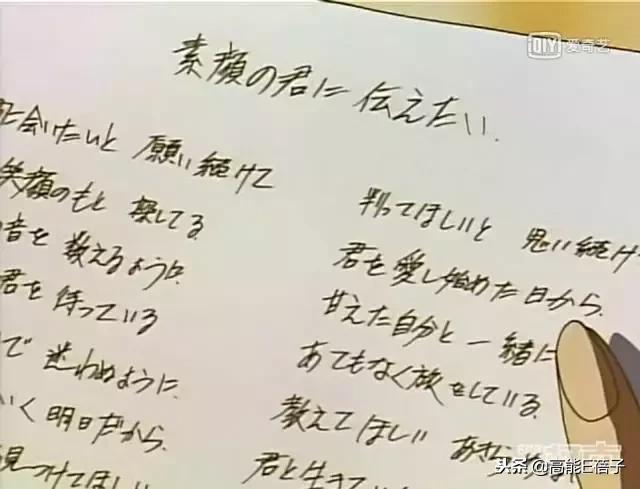 QIY 爱奇艺
素顔の君に 伝えたい.
に会いたいと 願い続けて
笑顔のもと 探してる
音を 数えるように
君を 待っている
で 迷わぬように
いく 明日だから
見つけてほしい
判ってほしいと 思い続け
君を愛し始めた日から
甘えた自分と 一緒に
あてもなく旅をしている
教えてほしい あき
君と生きて
头条 @高能E蓓子